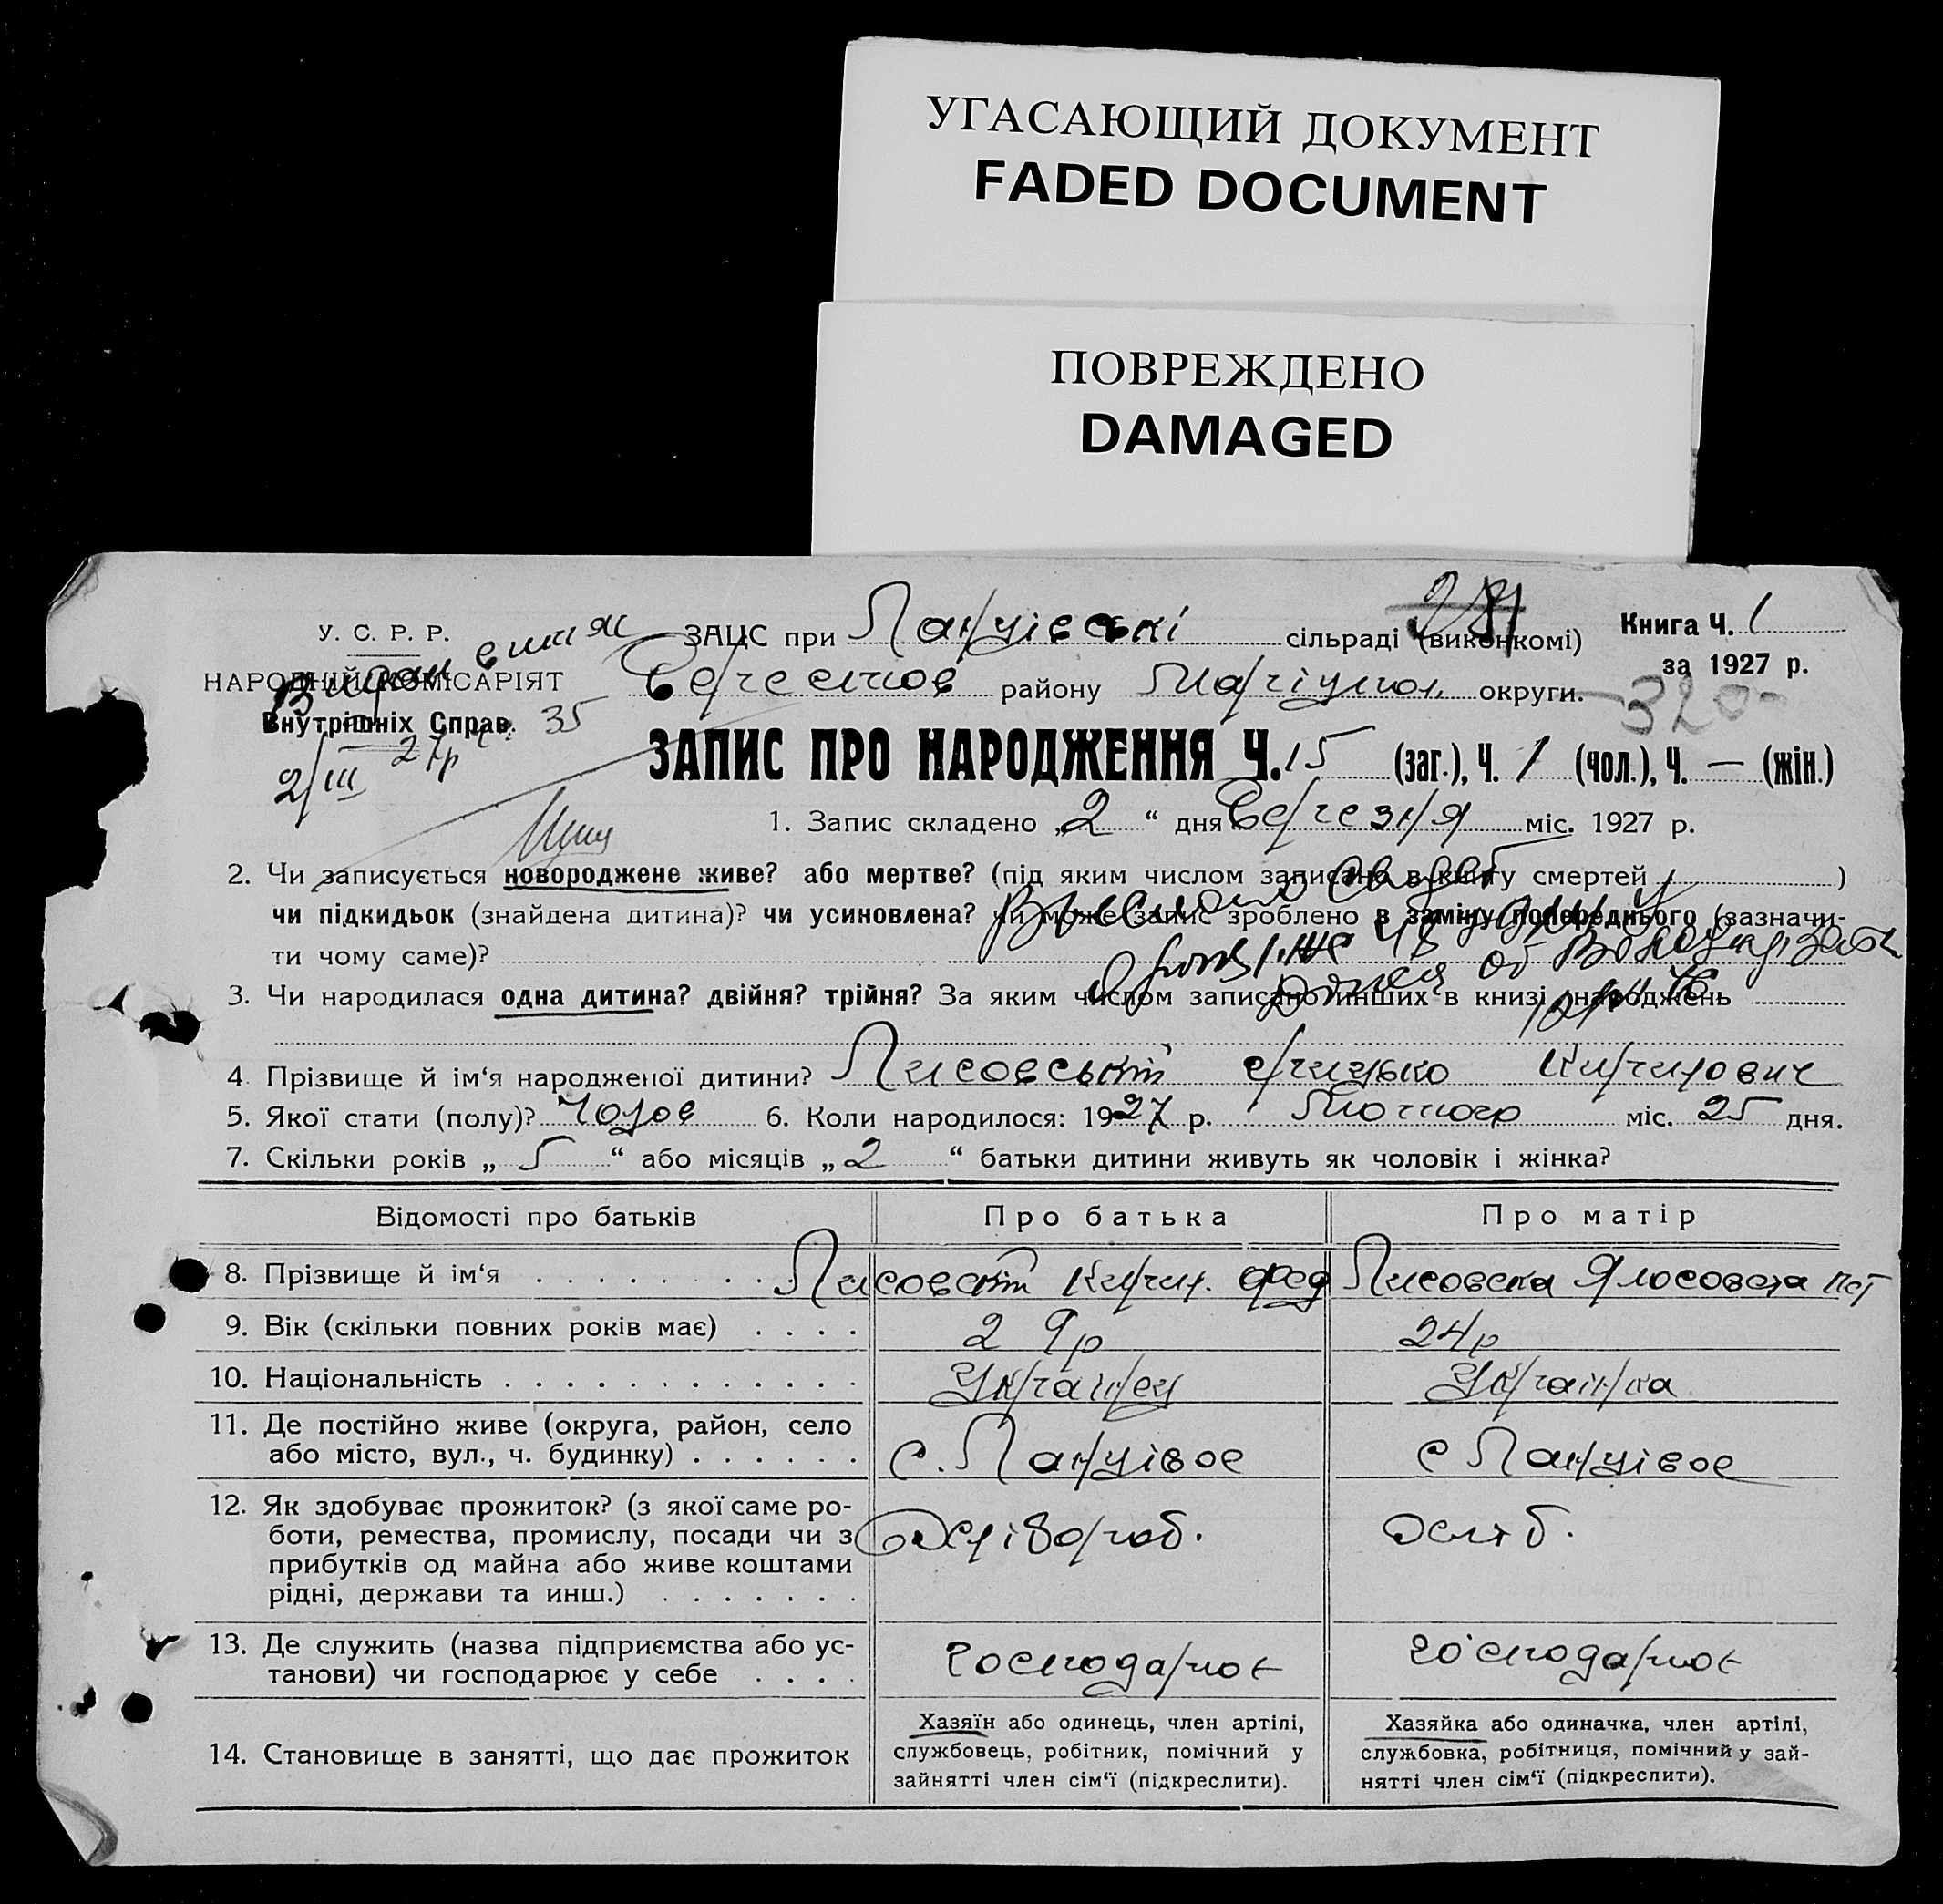 УГАСАЮЩИЙ ДОКУМЕНТ
FADED DOCUMENT
ПОВРЕЖДЕНО
DAMAGED
У. С. Р. Р.
НАРОДНІЙ КОМІСАРІЯТ
Внутрішніх Справ.
35
2/III 27р
ЗАЦС при сільраді (виконкомі)
району округи.
Книга Ч. 1
за 1927 р.
320
ЗАПИС ПРО НАРОДЖЕННЯ Ч. 15 (заг.), Ч. 1 (чол.), Ч. — (жін.)
1. Запис складено „2“ дня Березня міс. 1927 р.
2. Чи записується новороджене живе? або мертве? (під яким числом записано в книгу смертей )
чи підкидьок (знайдена дитина)? чи усиновлена? чи може запис зроблено в заміну попереднього (зазначи-
ти чому саме)?
3. Чи народилася одна дитина? двійня? трійня? За яким числом записано инших в книзі народжень
4. Прізвище й ім‘я народженої дитини? Лисовський Грицько Кирилович
5. Якої стати (полу)? Чолов 6. Коли народилося: 1927 р. Лютого міс. 25 дня.
7. Скільки років „5“ або місяців „2“ батьки дитини живуть як чоловік і жінка?
Відомості про батьків Про батька Про матір
8. Прізвище й ім‘я Лисовский Кирил. Фед Лисовска
9. Вік (скільки повних років має) 29р 24р
10. Національність Украінец Украінка
11. Де постійно живе (округа, район, село
або місто, вул., ч. будинку) с. с
12. Як здобуває прожиток? (з якої саме ро-
боти, ремества, промислу, посади чи з
прибутків од майна або живе коштами
рідні, держави та инш.) Хлібороб.
13. Де служить (назва підприємства або ус-
танови) чи господарює у себе господарює господарює
14. Становище в занятті, що дає прожиток
Хазяїн або одинець, член артілі,
службовець, робітник, помічний у
зайнятті член сім‘ї (підкреслити).
Хазяйка або одиначка, член артілі,
службовка, робітниця, помічний у зай-
нятті член сім‘ї (підкреслити).